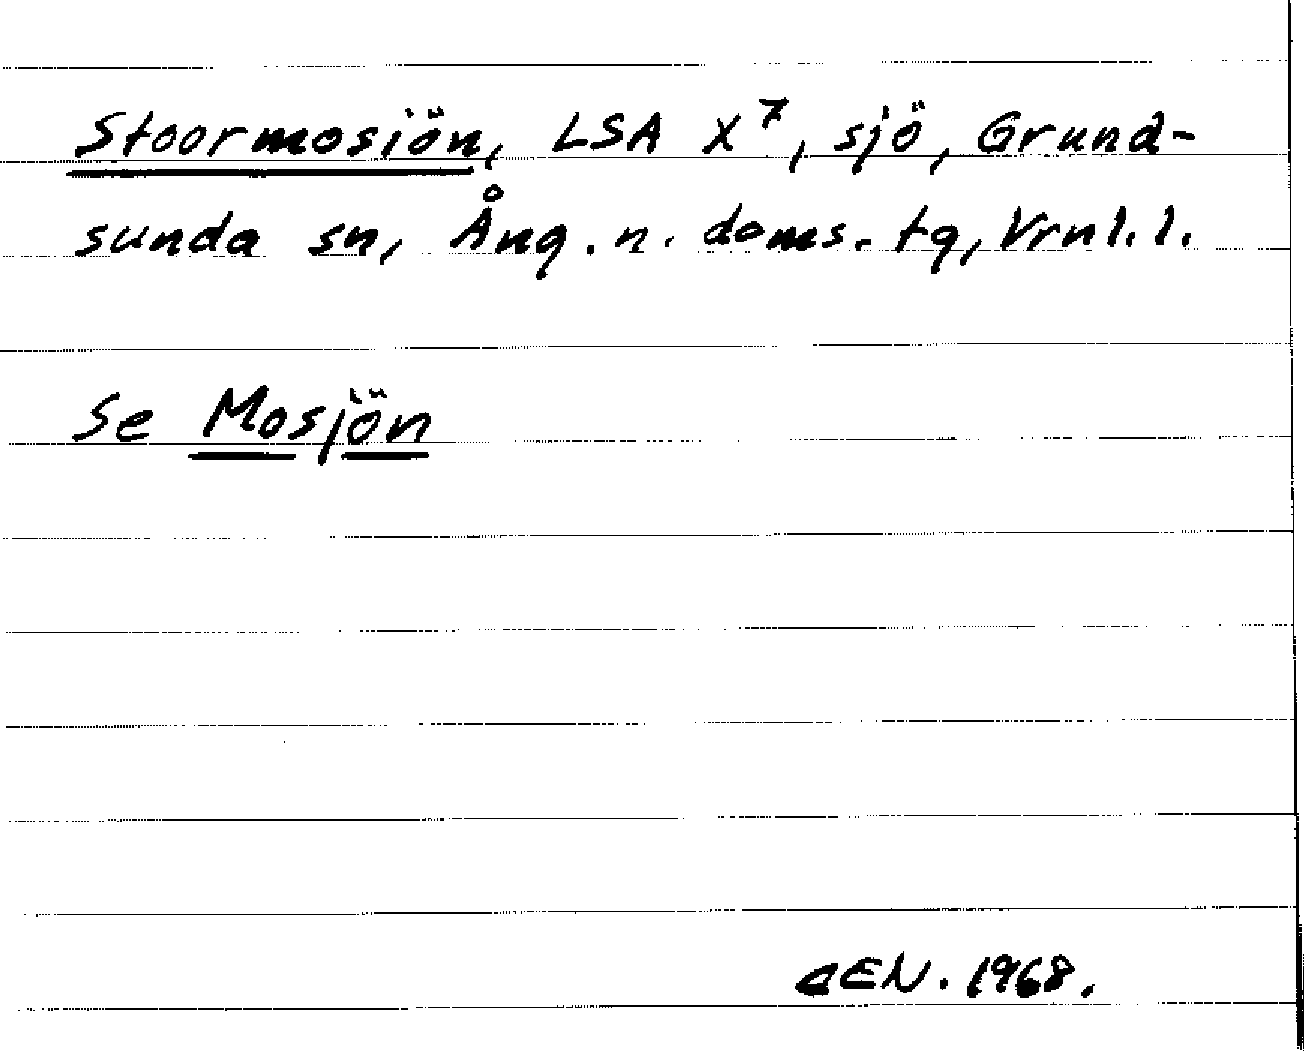 Stoormosiön, LSA X⁷, sjö, Grund-
sunda sn, Ång. n. doms. tg, Vrnl. l.
Se Mosjön
CEN. 1968.